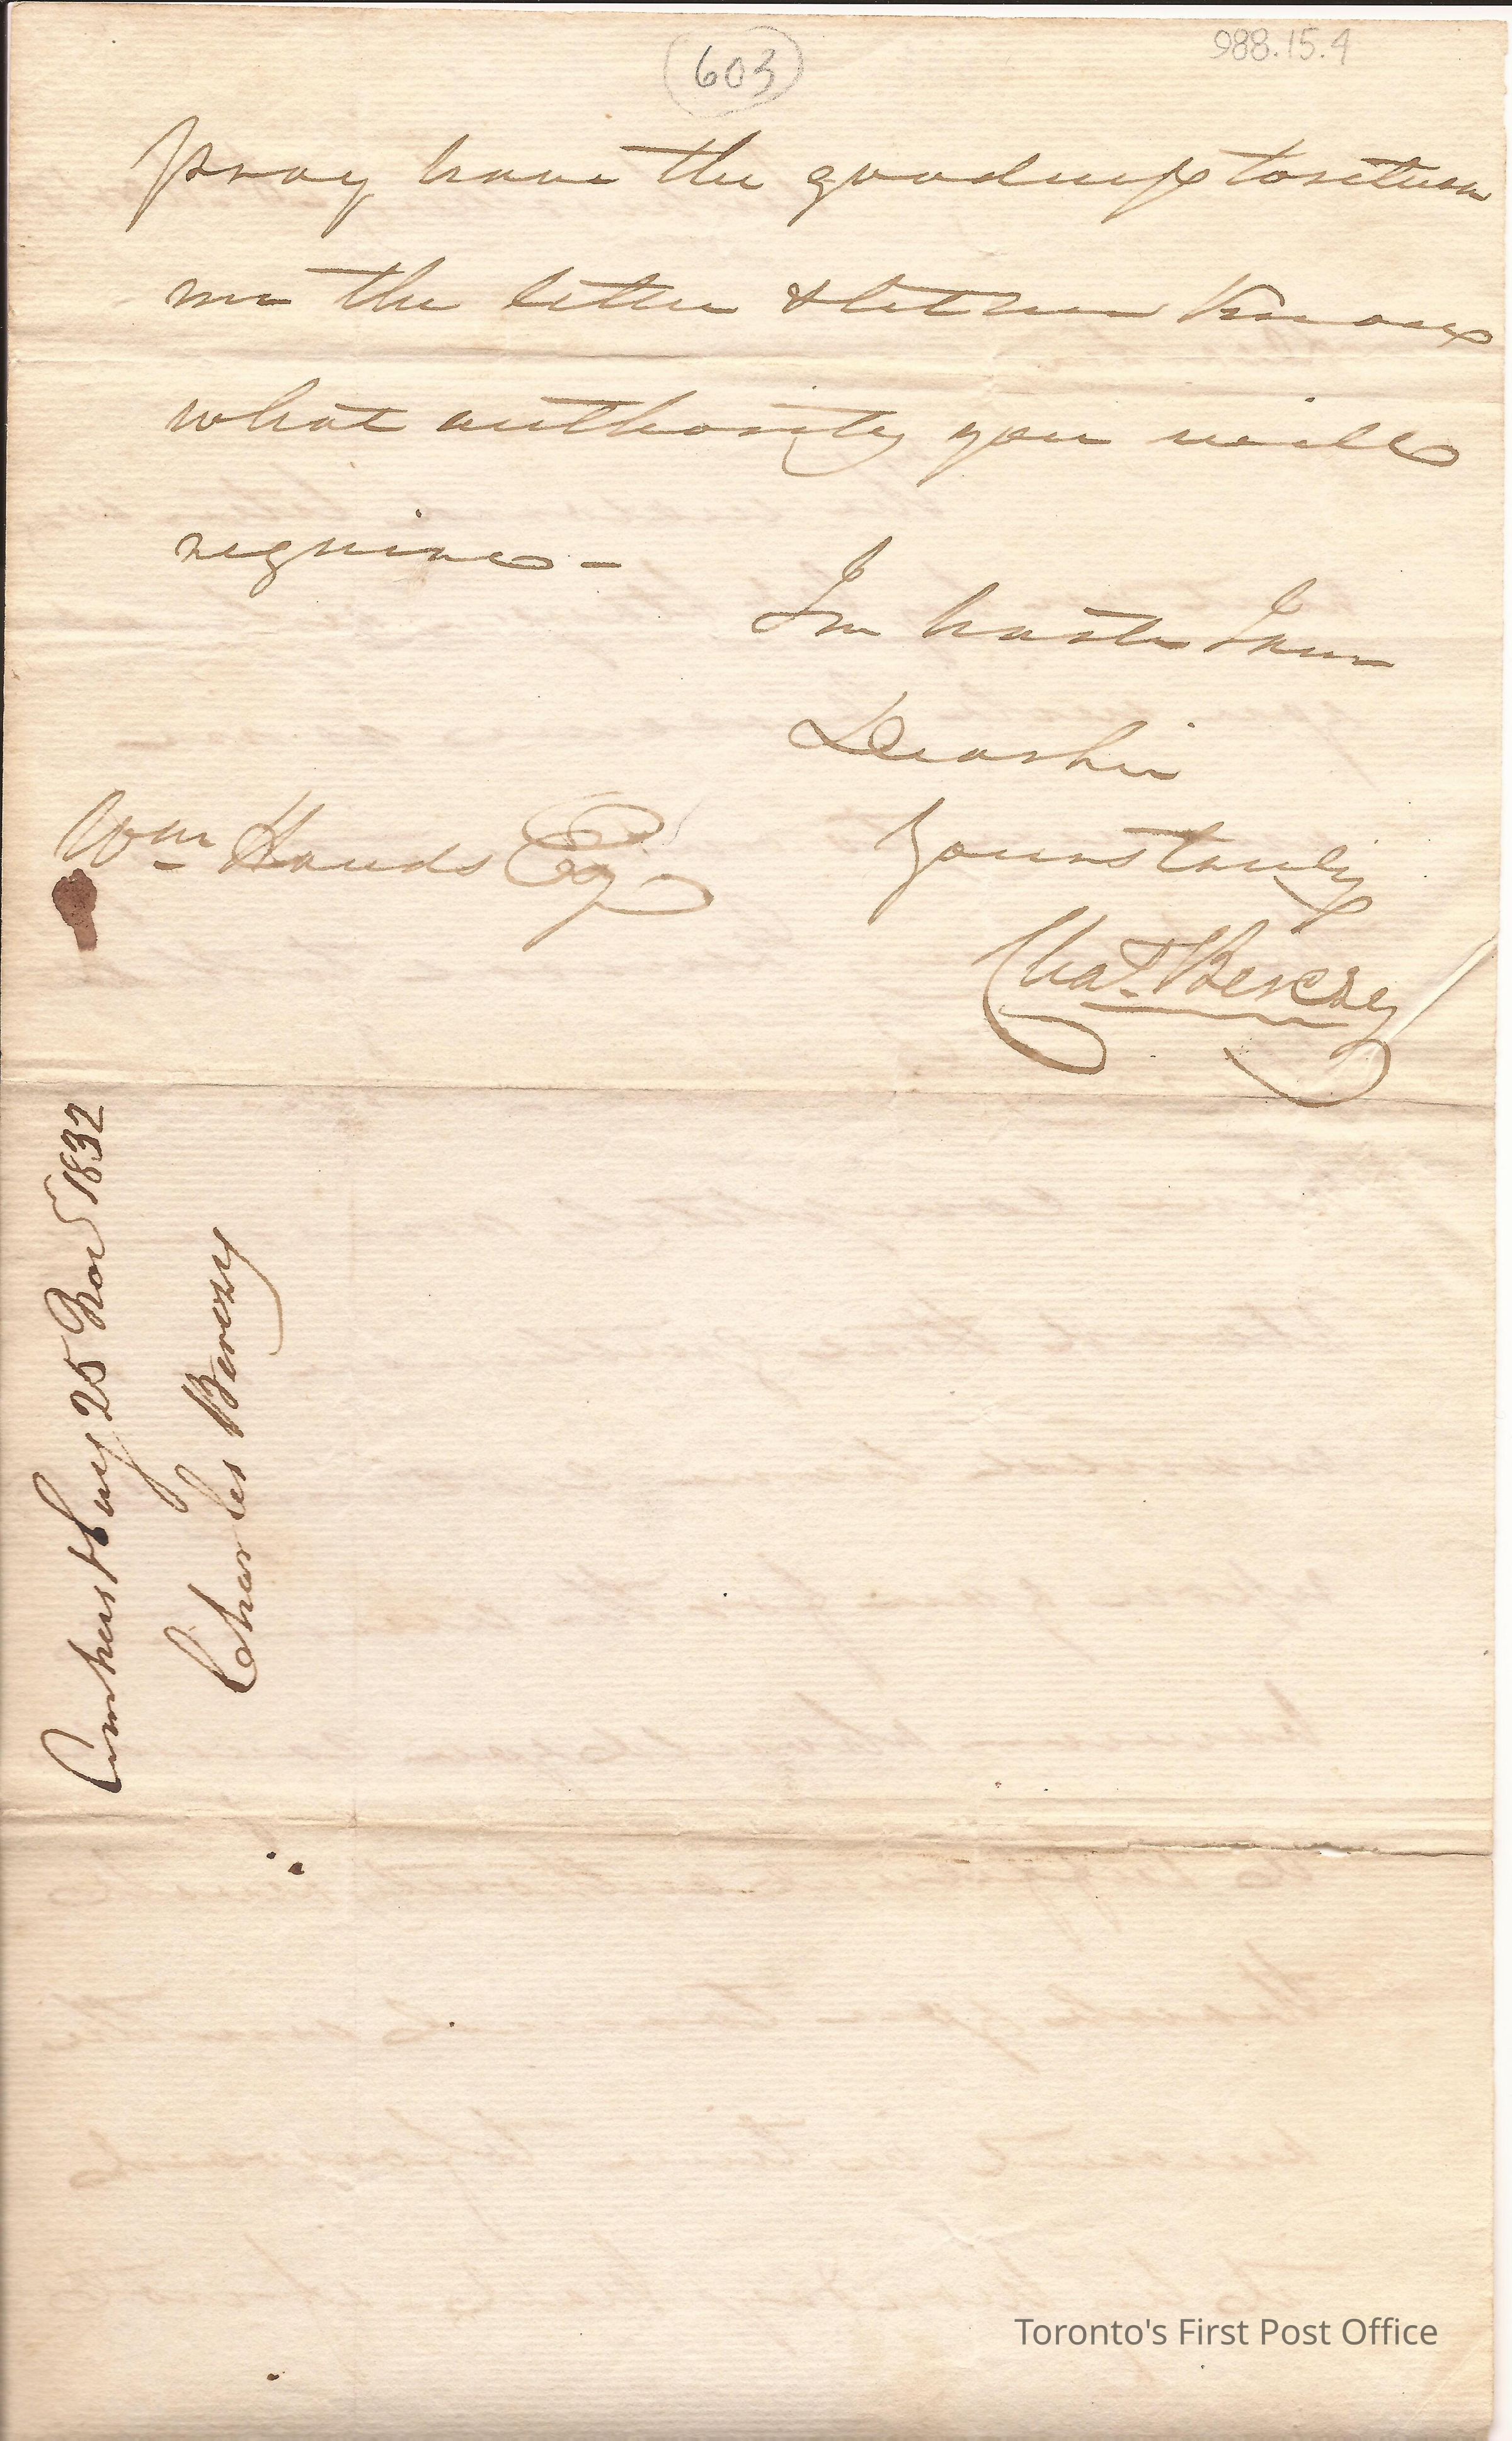 603
988.15.4
pray have the goodness to return
me the letter & let me know
what authority you will
require -
In haste I am
Dear Sir
Yours truly
Wm Hands Esq
Chas. Berczy
Amherstburg 25 Nov 1832
Charles Berczy
Toronto's First Post Office